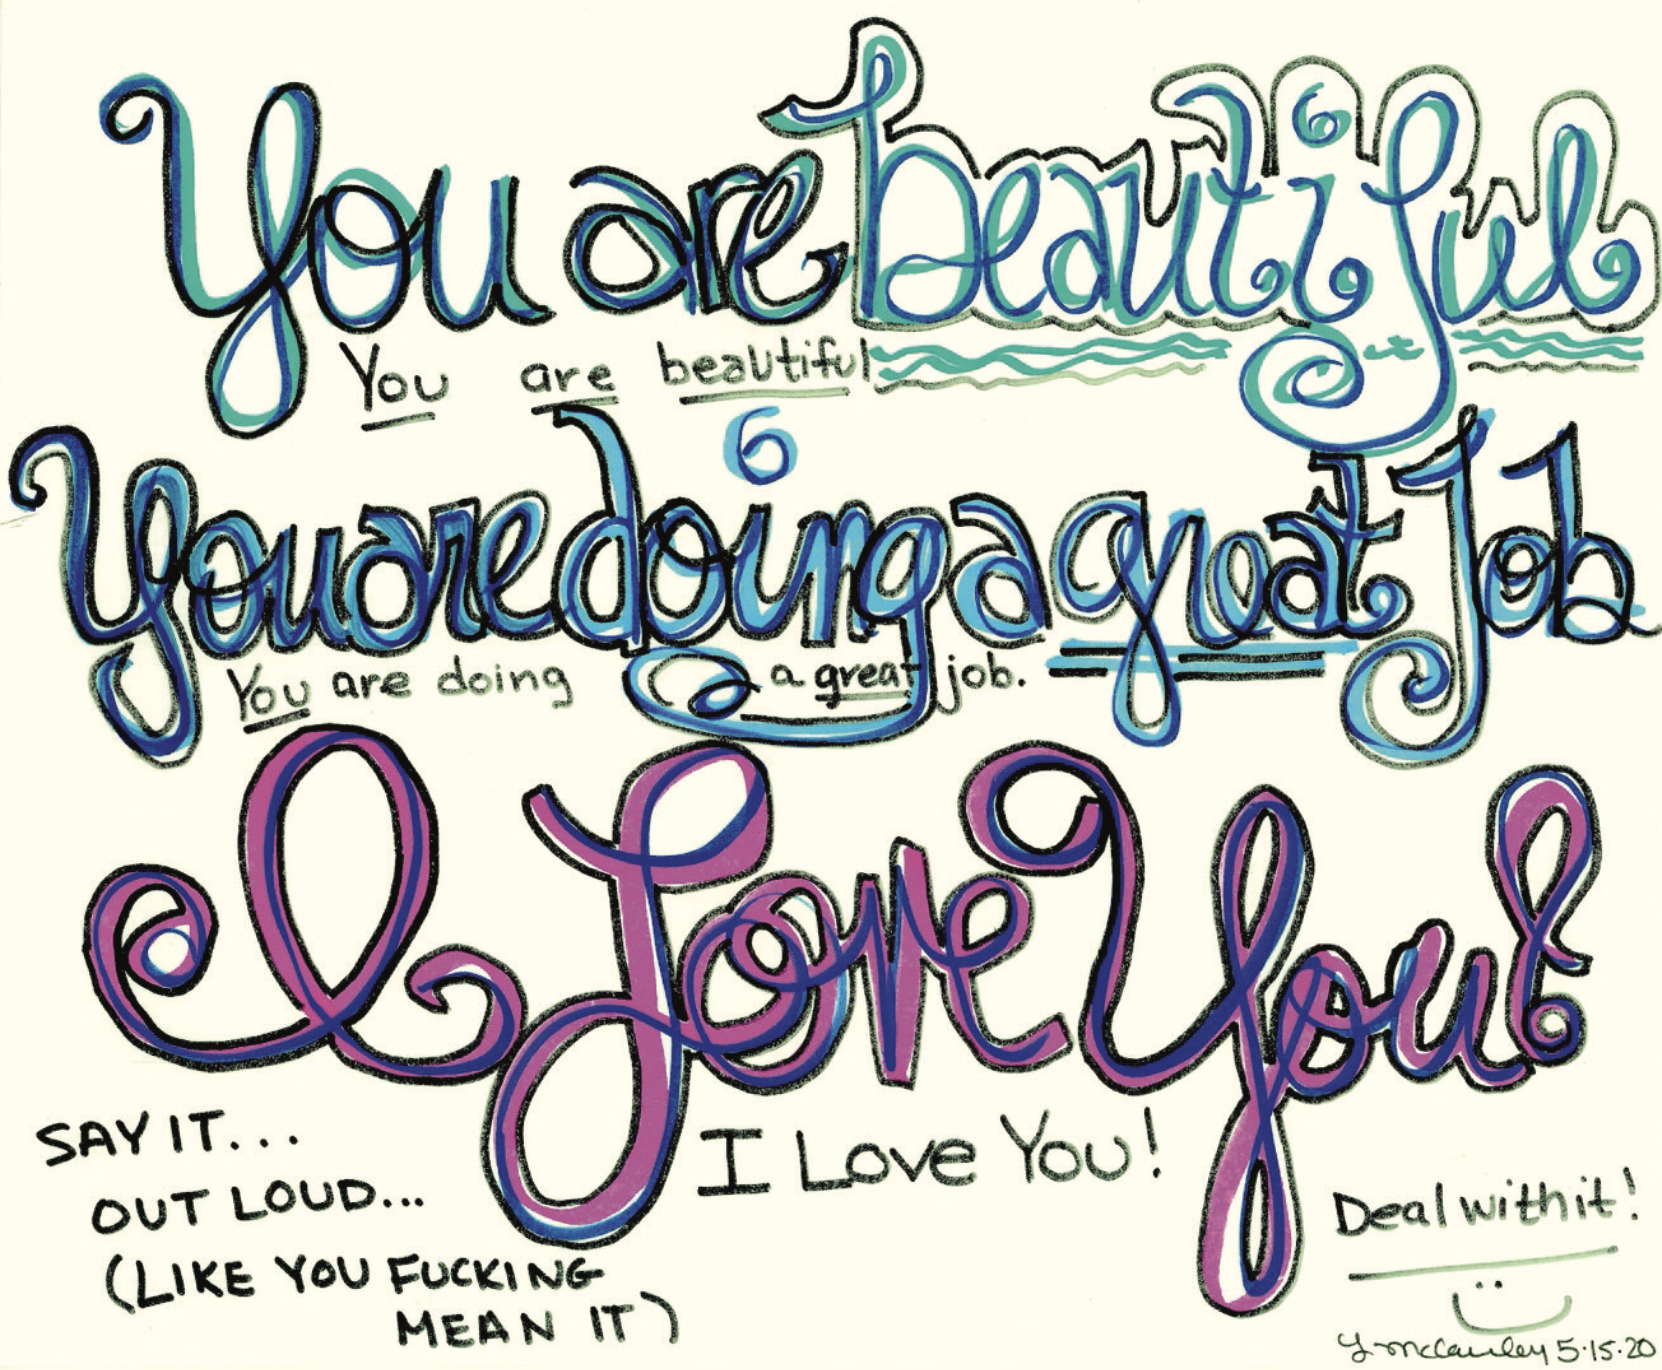 You are beautiful
You are beautiful
You are doing a great Job
You are doing a great job.
I Love You!
I Love You!
SAY IT...
OUT LOUD...
(LIKE YOU FUCKING
MEAN IT)
Deal with it!
5.15.20